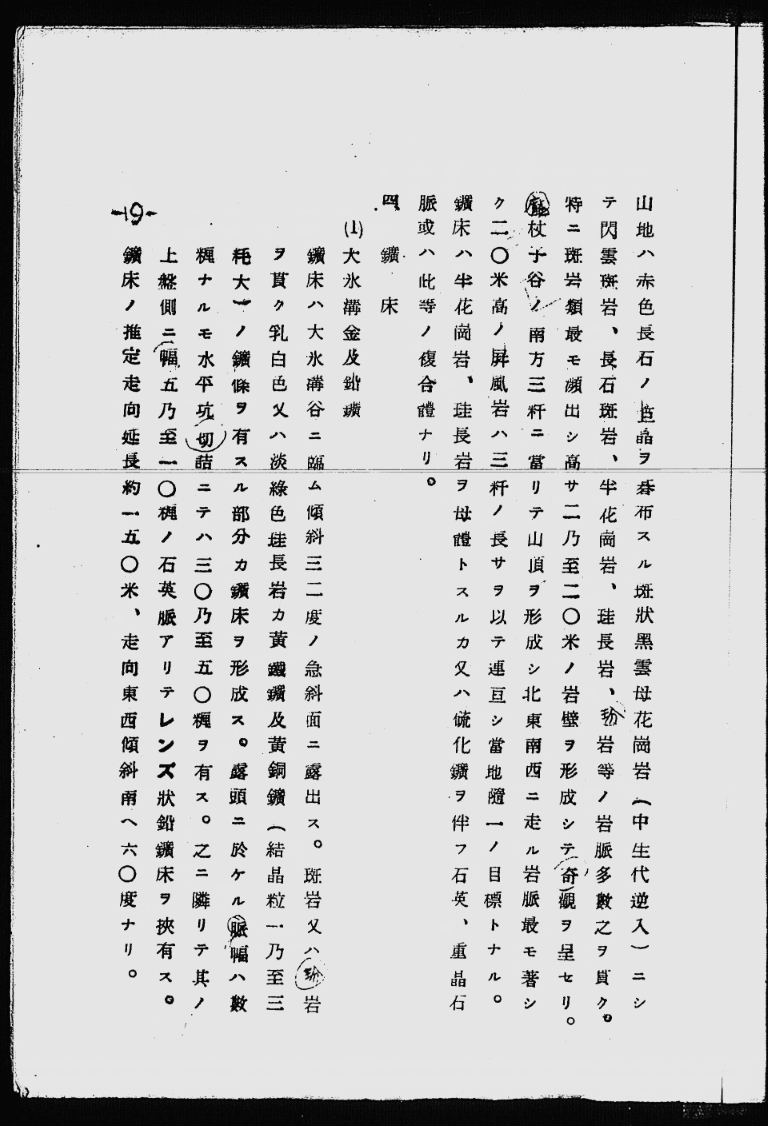 山地ハ赤色長石ノ巨晶ヲ呑布スル斑狀黑雲母花崗岩(中生代逆入)ニシ
テ閃雲斑岩、長石斑岩、半花崗岩、珪長岩、玢岩等ノ岩脈多數之ヲ貫ク。
特ニ斑岩類最モ頻出シ高サ二乃至二〇米ノ岩壁ヲ形成シテ奇觀ヲ呈セリ。
杖子谷ノ南方三粁ニ當リテ山頂ヲ形成シ北東南西ニ走ル岩脈最モ著シ
ク二〇米高ノ屛風岩ハ三粁ノ長サヲ以テ連亘シ當地隨一ノ目標トナル。
鑛床ハ半花崗岩、珪長岩ヲ母體トスルカ又ハ硫化鑛ヲ伴フ石英、重晶石
脈或ハ此等ノ複合體ナリ。
四、鑛床
(1)大氷溝金及鉛鑛
鑛床ハ大氷溝谷ニ臨ム傾斜三二度ノ急斜面ニ露出ス。斑岩又ハ玢岩
ヲ貫ク乳白色又ハ淡綠色珪長岩カ黃鐵鑛及黃銅鑛(結晶粒一乃至三
粍大)ノ鑛條ヲ有スル部分カ鑛床ヲ形成ス。露頭ニ於ケル脈幅ハ數
糎ナルモ水平坑切詰ニテハ三〇乃至五〇糎ヲ有ス。之ニ隣リテ其ノ
上盤側ニ幅五乃至一〇糎ノ石英脈アリテレンズ狀鉛鑛床ヲ挾有ス。
鑛床ノ推定走向延長約一五〇米、走向東西傾斜南ヘ六〇度ナリ。
-19-